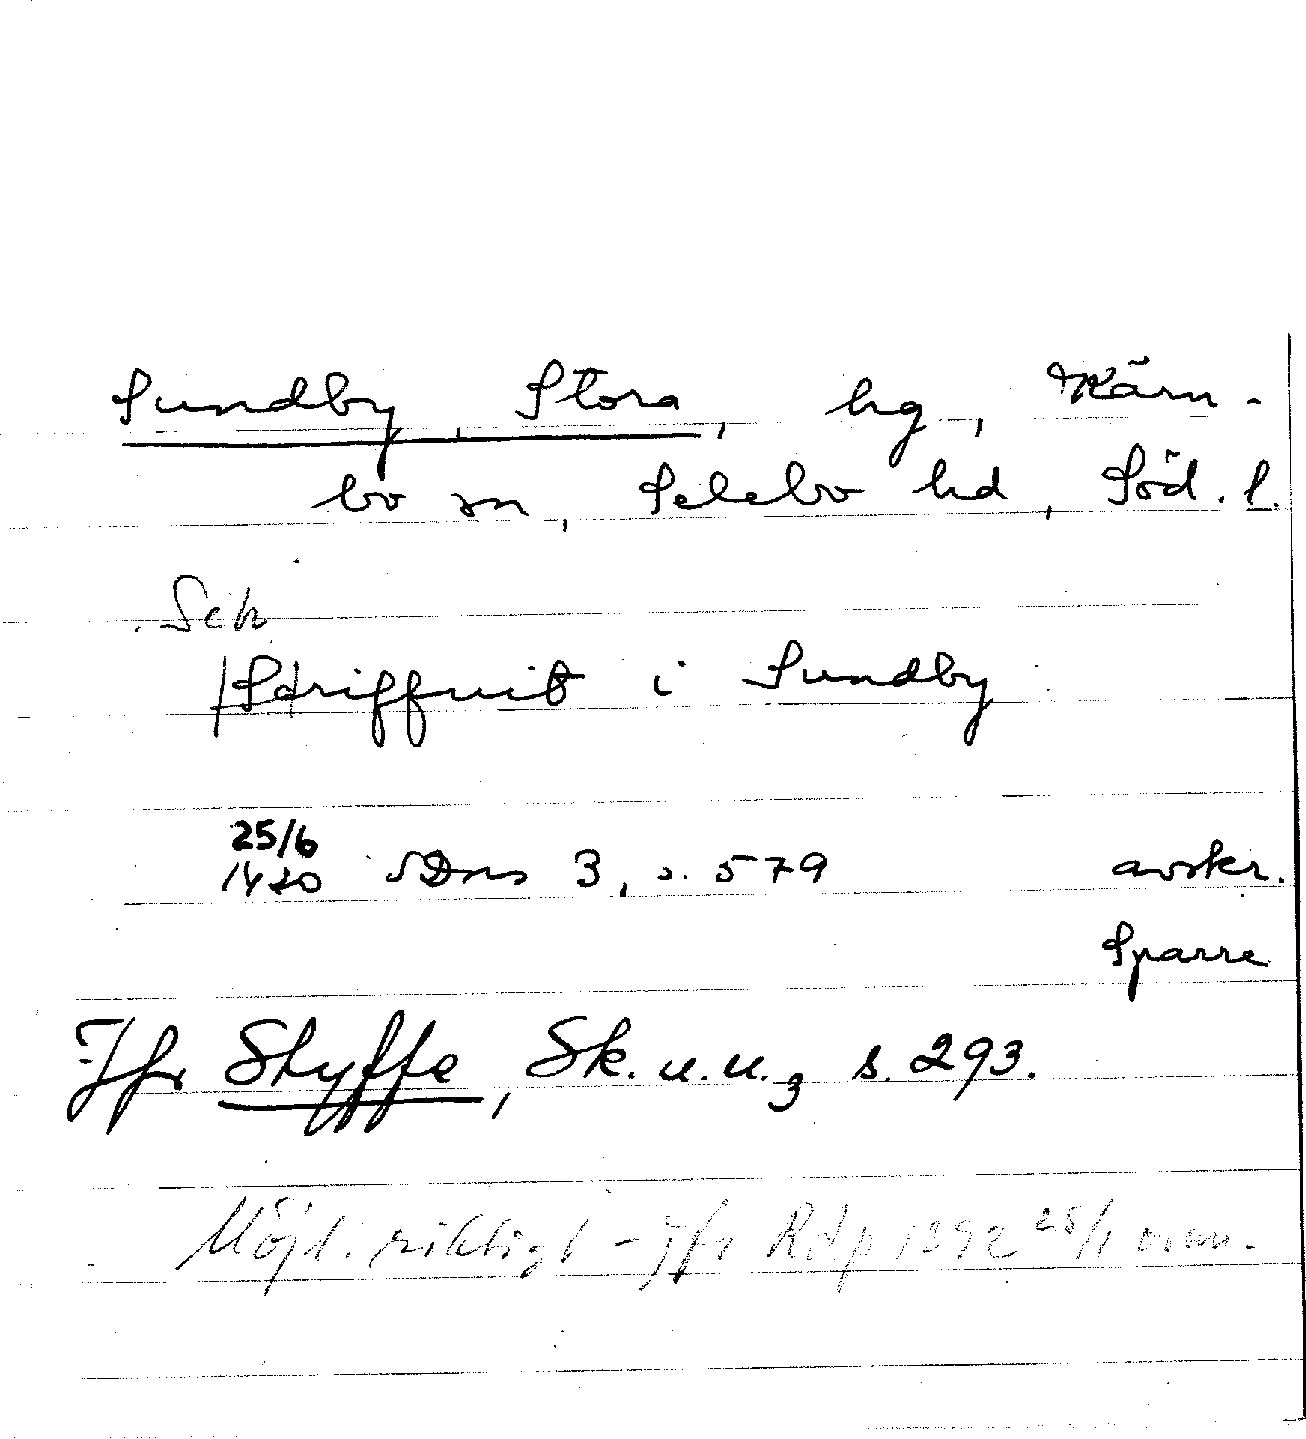 Sundby, Stora, hg, Kärn-
bo sn, Selebo hd, Söd. l.
Sch
Skriffuit i Sundby
25/6
1420 SDns 3, s. 579 avskr.
Sparre
Jfr Styffe, Sk. u. u. 3 s. 293.
Möjl. riktigt - jfr Rdp 1392 28/1 osv.